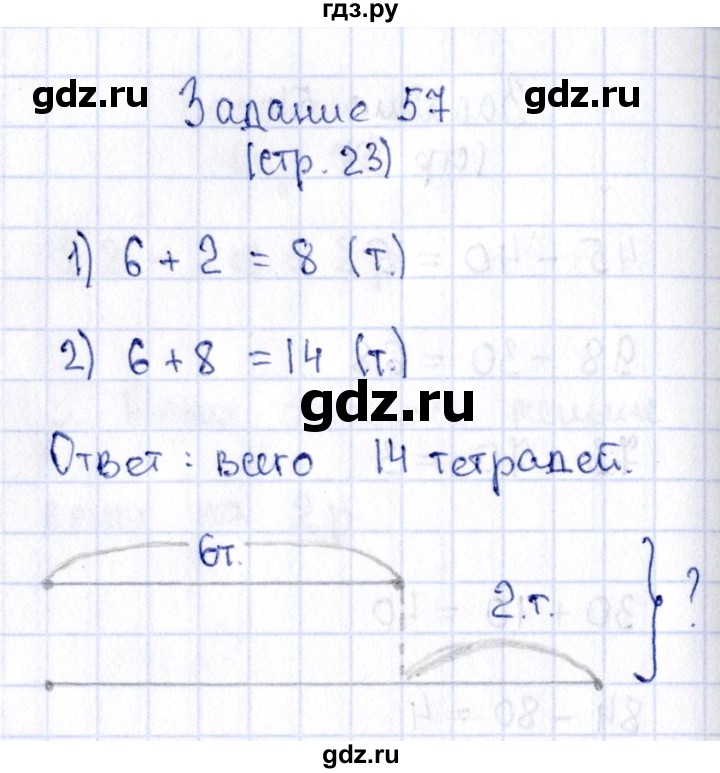 гдз.ру
gdz.ru gdz.ru
Задание 57
(стр. 23)
1) 6 + 2 = 8 (т.)
2) 6 + 8 = 14 (т.)
gdz.ru
Ответ: всего 14 тетрадей.
6т.
2.т.
?
gdz.ru